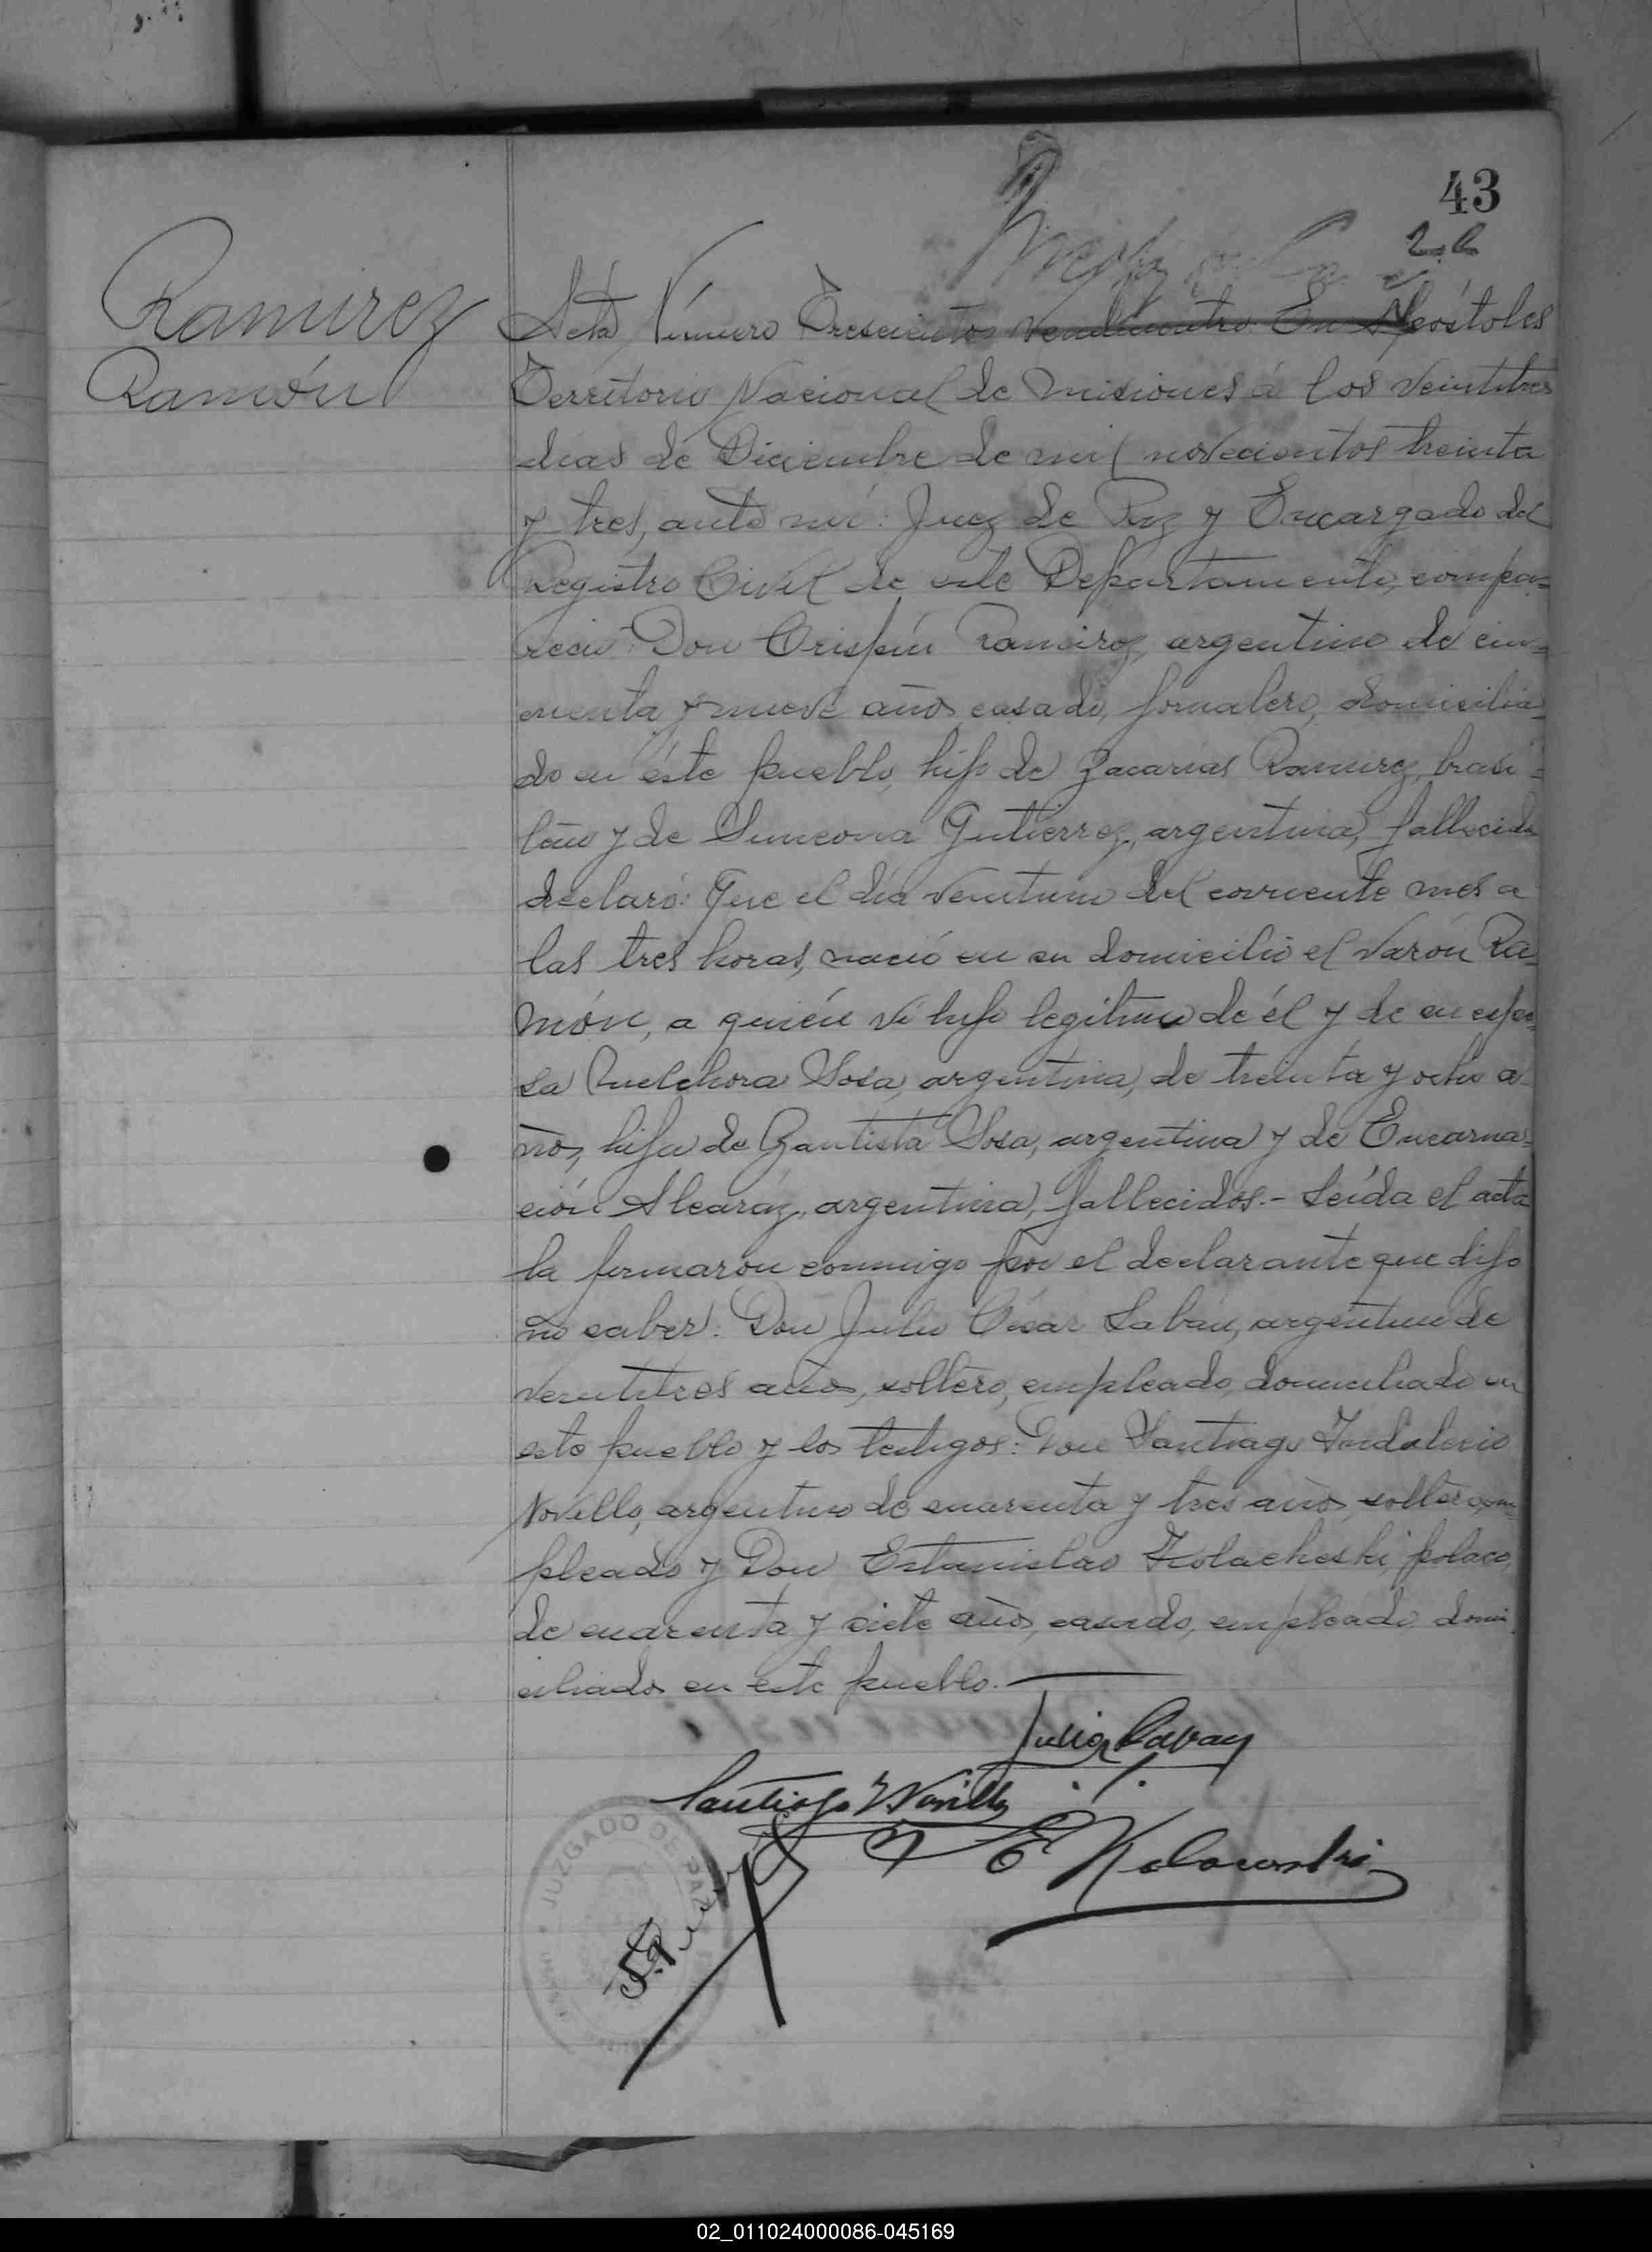 43
Ramirez
Ramón
Acta Número Trescientos veinticuatro En Apóstoles
Territorio Nacional de Misiones á los veintitres
días de Diciembre de mil novecientos treinta
y tres, ante mí: Juez de Paz y Encargado del
Registro Civil de este Departamento, compa=
reció: Don Crispín Ramirez, argentino de cin=
cuenta y nueve años, casado, jornalero, domicilia=
do en éste pueblo, hijo de Zacarías Ramirez, brasi=
leño y de Simeona Gutierrez, argentina, fallecidos
declaró: Que el día veintiuno del corriente mes a
las tres horas, nació en su domicilio el varón Ra=
món, a quién ví hijo legítimo de él y de su espo=
sa Melchora Sosa, argentina, de treinta y ocho a=
ños, hija de Bautista Sosa, argentina y de Encarna=
ción Alcaráz, argentina, fallecidos.- Leída el acta
la firmaron conmigo por el declarante que dijo
no saber: Don Julio César Labán, argentino de
veintitres años, soltero, empleado, domiciliado en
este pueblo y los testigos: Don Santiago Indalecio
Novillo, argentino de cuarenta y tres años, soltero, em=
pleado y Don Estanislao Kolacheski, polaco,
de cuarenta y siete años, casado, empleado, domi
ciliados en este pueblo.
Santiago I Novillo
JUZGADO DE PAZ
02_011024000086-045169